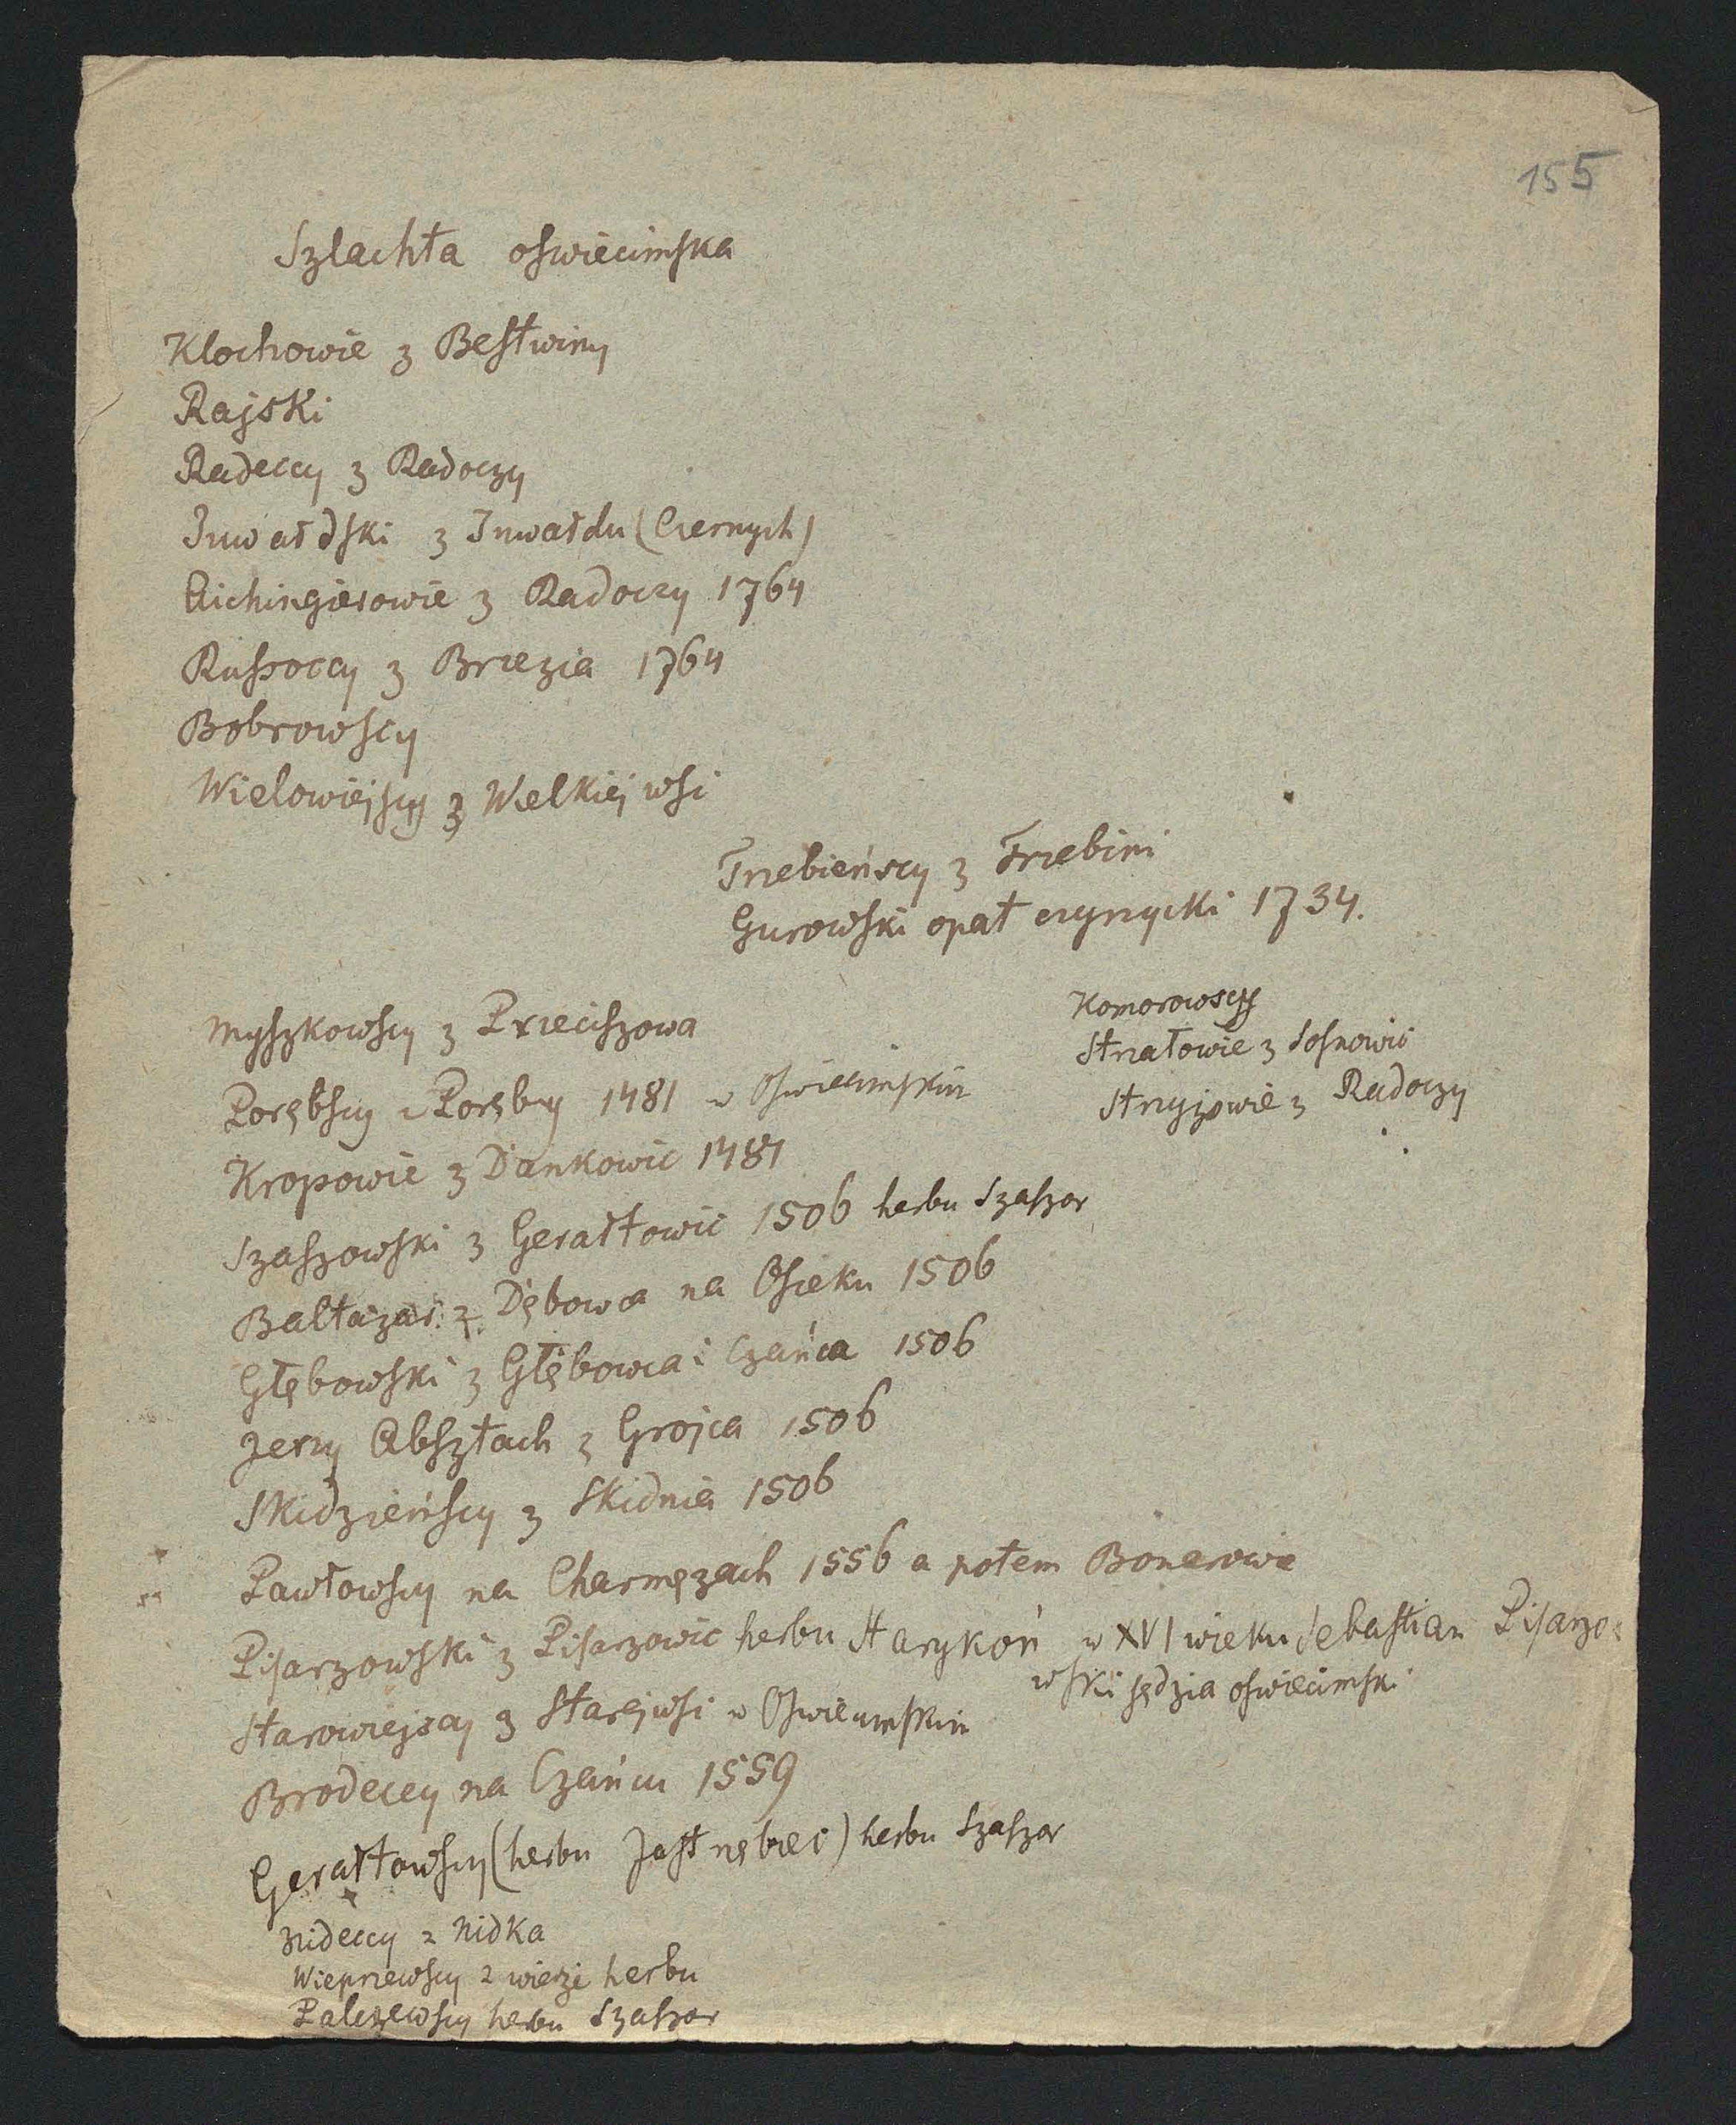 155
Szlachta oswiecimska
Klochowie z Bestwiny
Rajski
Radeccy z Radoczy
Inwałdski z Inwałdu (Czernych)
Aichingierowie z Radoczy 1764
Russoccy z Brzezia 1764
Bobrowscy
Wielowiejscy z Wielkiej wsi
Trzebieńscy z Trzebini
Gurowski opat czyrzycki 1734.
Komorowscy
Strzałowie z Sosnowic
Stryżowie z Radoczy
Myszkowscy z Przeciszowa
Porębscy z Poręby 1481 w Oswiecimskim
Kropowie z Dankowic 1481
Szaszowski z Gerałtowic 1506 herbu Szaszor
Baltazar z Dębowca na Osieku 1506
Głębowski z Głębowca i Czańca 1506
Jerzy Absztach z Grojca 1506
Skidzieńscy z Skidnia 1506
Pawłowscy na Charmęzach 1556 a potem Bonerowie
Pisarzowski z Pisarzowic herbu Starykoń w XVI wieku Sebastian Pisarzo=
wski sędzia oswiecimski
Starowiejscy z Starejwsi w Oswiecimskim
Brodeccy na Czańcu 1559
Gerałtowscy (herbu Jastrzębiec) herbu Szaszor
Nideccy z Nidka
Wieprzewscy z wieże herbu
Palczewscy herbu Szaszor